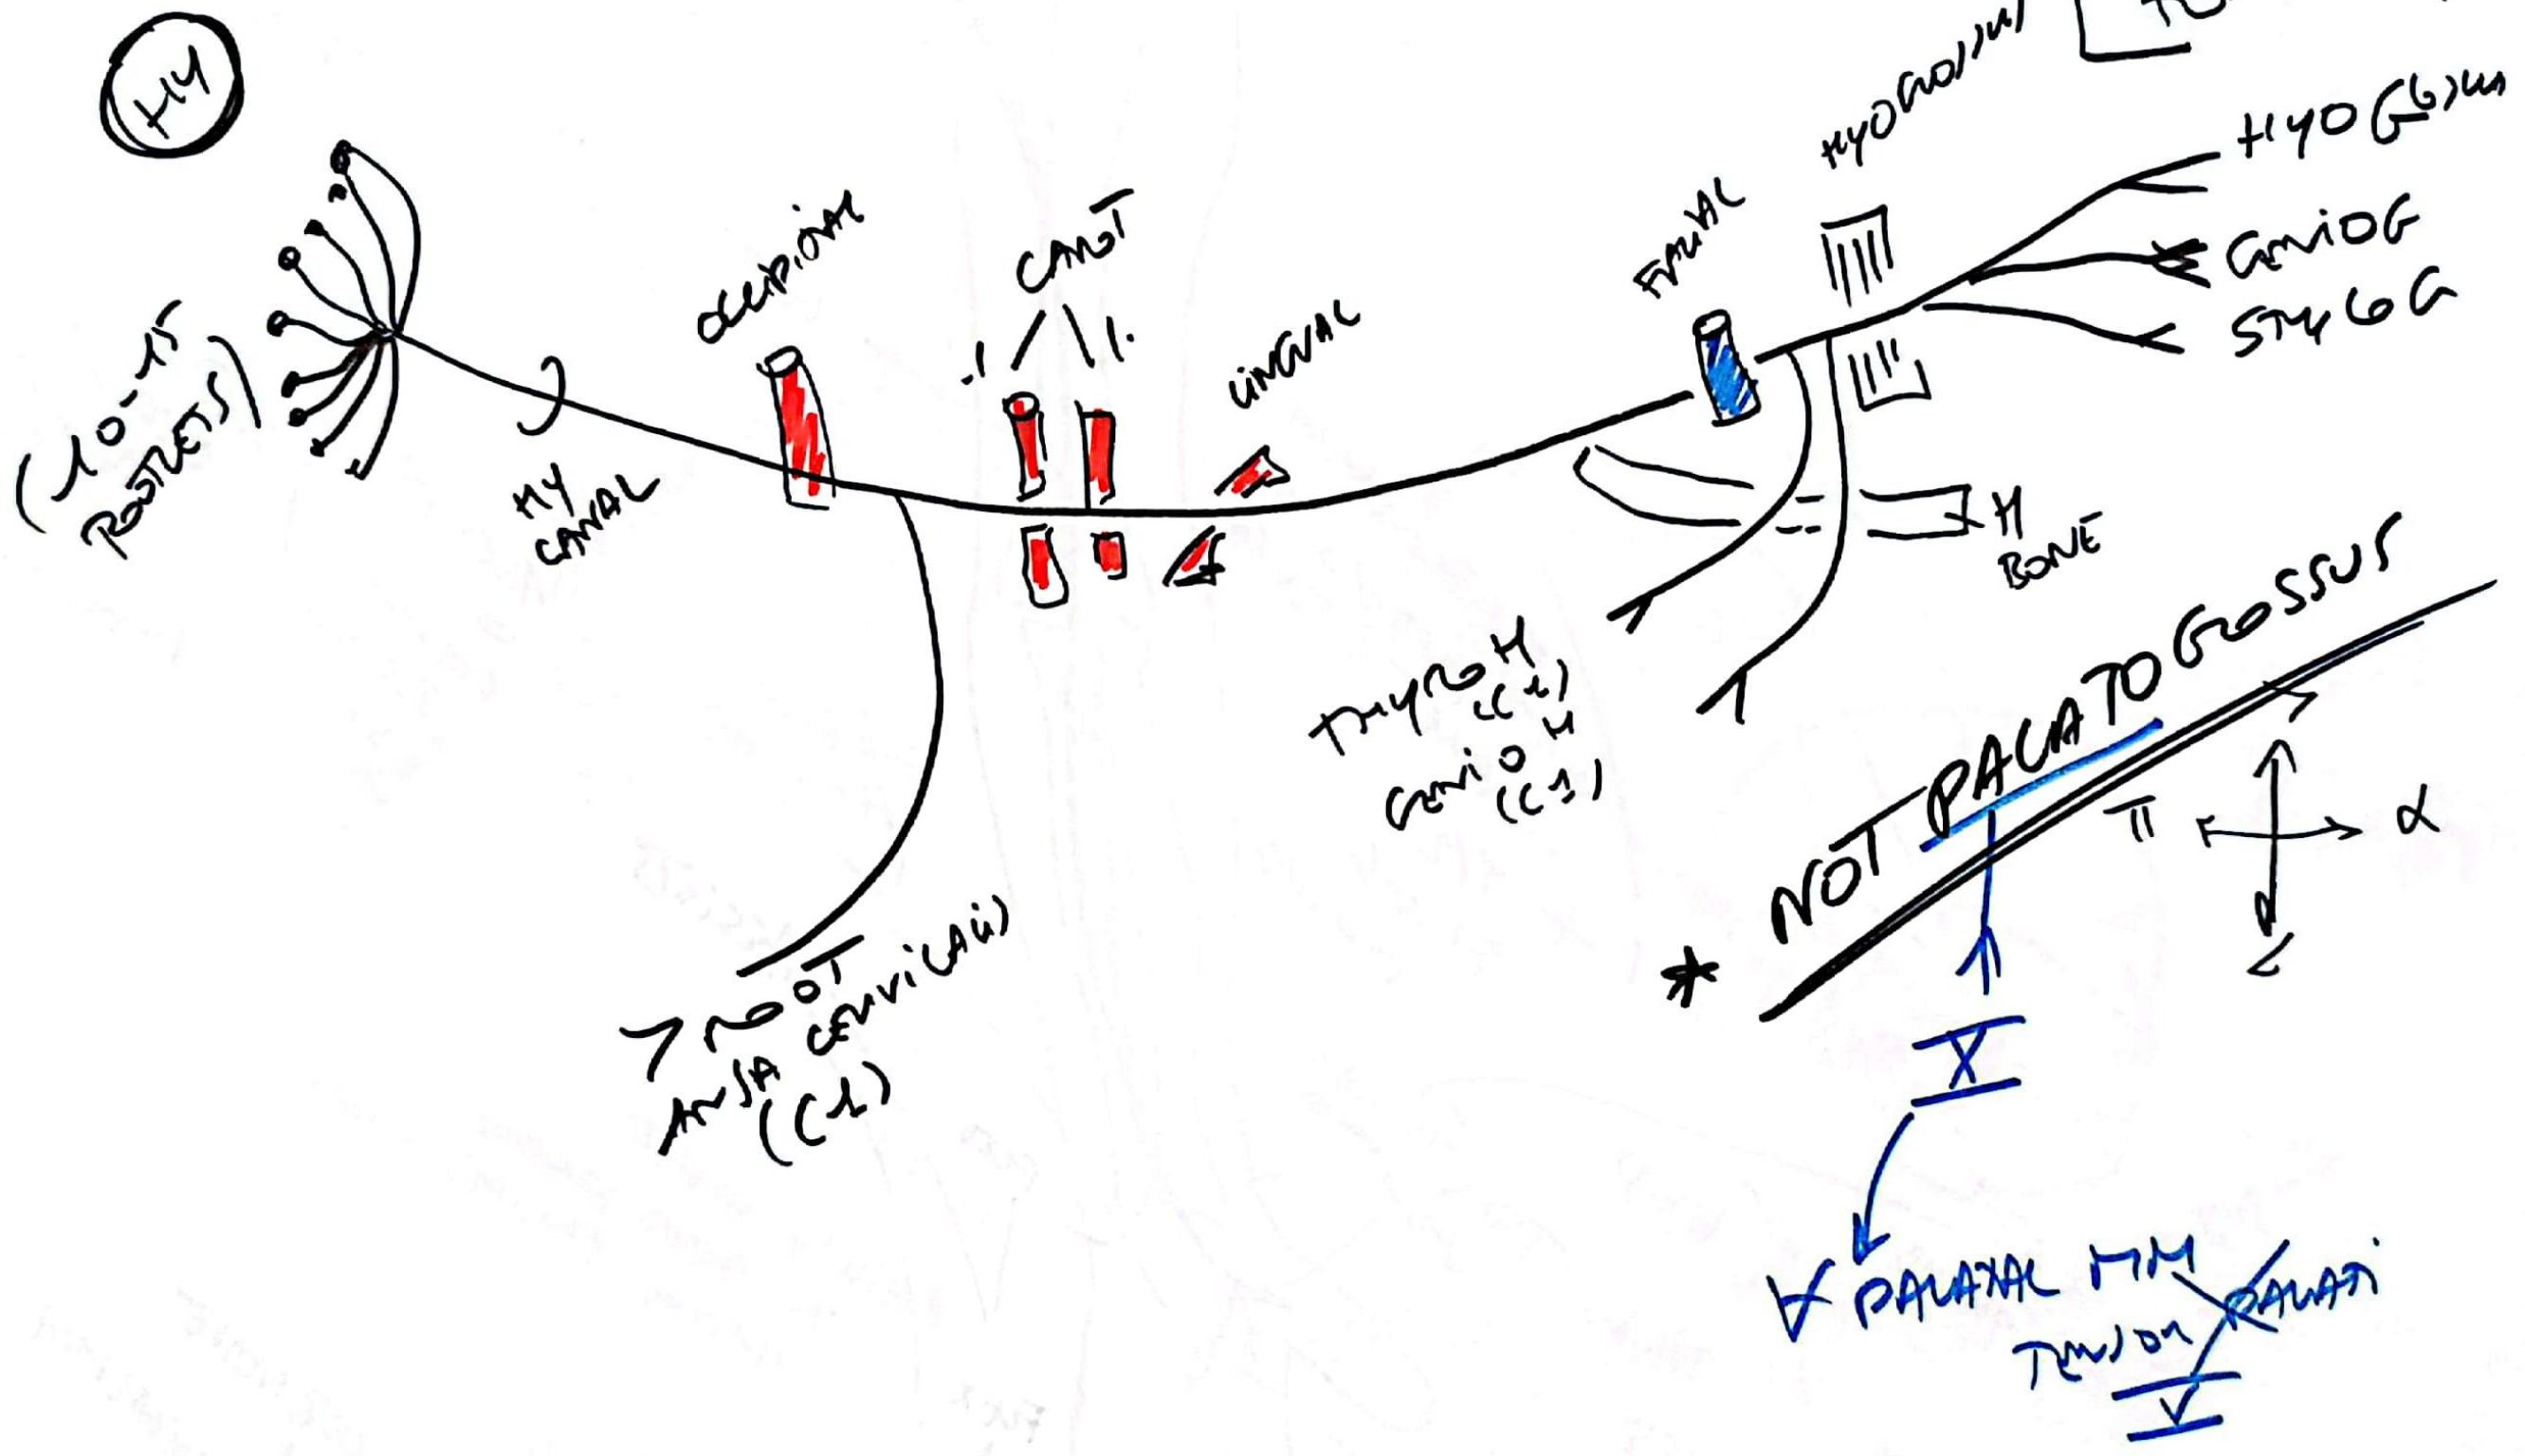 HY
(10-15
ROOTLETS)
HY
CANAL
OCCIPITAL
CAROT
LINGUAL
FACIAL
HYOGLOSSUS
HYOGLOSSUS
GENIOG
STYLOG
H
BONE
THYROH
(C1)
GENIOH
(C1)
ROOT
ANSA CERVICALIS
(C1)
* NOT PALATOGLOSSUS
X
∀ PALATAL MM
TENSOR PALATI
V
π
α